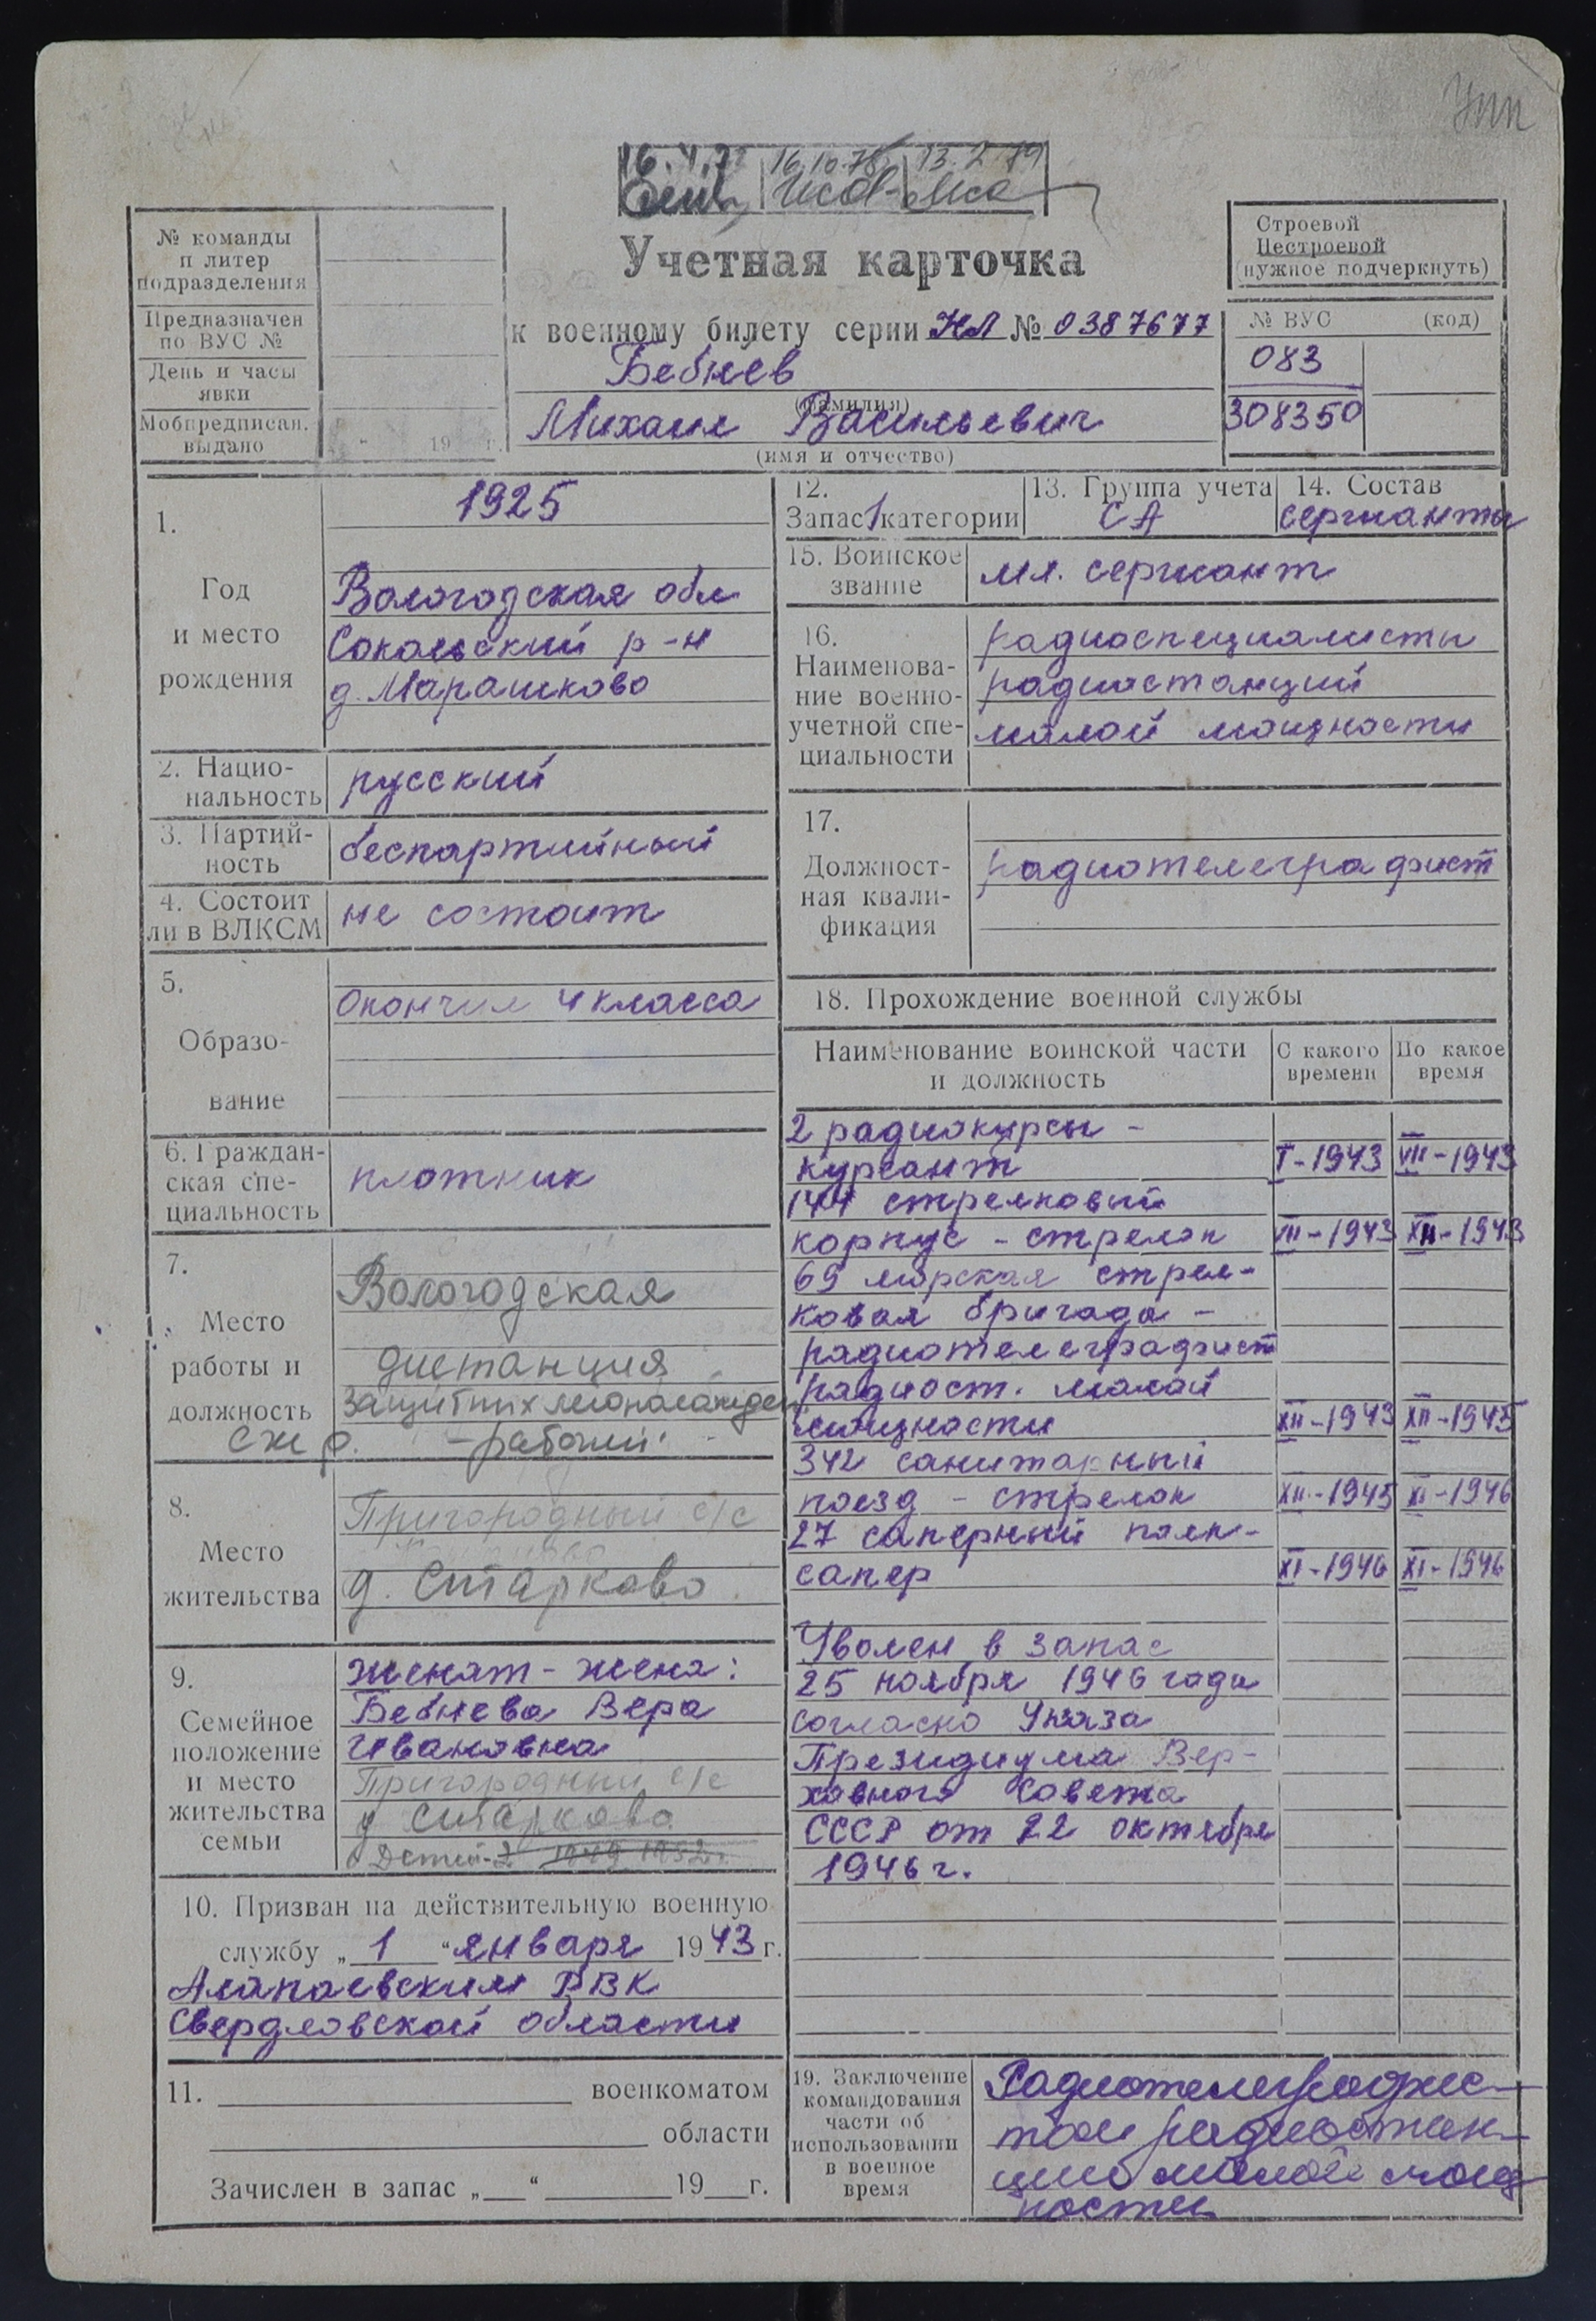 Упп
16.4.7
16.10.78
13.2.79
№ команды
и литер
подразделения
Предназначен
по ВУС №
День и часы
явки
Мобпредписан.
выдано
" 19 г.
Учетная карточка
к военному билету серии НЛ № 0387677
Бебнев
(фамилия)
Михаил Васильевич
(имя и отчество)
Строевой
Нестроевой
(нужное подчеркнуть)
№ ВУС (код)
083
308350
1.
Год
и место
рождения
1925
Вологодская обл
Сокольский р-н
д. Марашково
2. Нацио-
нальность
русский
3. Партий-
ность
беспартийный
4. Состоит
ли в ВЛКСМ
не состоит
5.
Образо-
вание
Окончил 4 класса
6. Граждан-
ская спе-
циальность
плотник
7.
Место
работы и
должность
Вологодская
дистанция
защитных лесонасажден.
сжд. - рабочий
8.
Место
жительства
Пригородный с/с
д. Ситарково
9.
Семейное
положение
и место
жительства
семьи
женат - жена:
Бебнева Вера
Ивановна
Пригородный с/с
д Ситарково
Детей-2 1949 1952г.
10. Призван на действительную военную
службу „ 1 “ января 1943 г.
Алапаевским РВК
Свердловской области
11. военкоматом
области
Зачислен в запас „ “ 19 г.
12.
Запас 1 категории
13. Группа учета
СА
14. Состав
сержанты
15. Воинское
звание
мл. сержант
16.
Наименова-
ние военно-
учетной спе-
циальности
радиоспециалисты
радиостанций
малой мощности
17.
Должност-
ная квали-
фикация
радиотелеграфист
18. Прохождение военной службы
Наименование воинской части
и должность
С какого
времени
По какое
время
2 радиокурсы -
курсант I-1943 VII-1943
144 стрелковый
корпус - стрелок VII-1943 XII-1943
69 морская стрел-
ковая бригада -
радиотелеграфист
радиост. малой
мощности XII-1943 XII-1945
342 санитарный
поезд - стрелок XII-1945 XI-1946
27 саперный полк-
сапер XI-1946 XI-1946
Уволен в запас
25 ноября 1946 года
согласно Указа
Президиума Вер-
ховного Совета
СССР от 22 октября
1946 г.
19. Заключение
командования
части об
использовании
в военное
время
Радиотелеграфис-
том радиостан-
ции малой мощ
ности